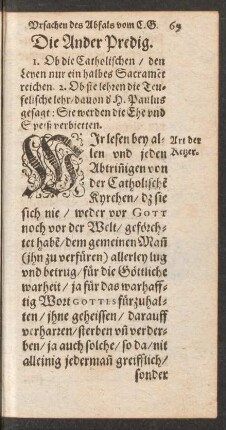 Vrsachen des Abfals vom C.G. 69
Die Ander Predig.
1. Ob die Catholischen / den
Leyen nur ein halbes Sacramēt
reichen. 2. Ob sie lehren die Teu-
felische lehr / dauon s H. Paulus
gesagt: Sie werden die Ehe vnd
Speiß verbietten.
WIr lesen bey al-
len vnd jeden
Abtrinigen von
der Catholischē
Kyrchen / dz sie
Art der
Ketzer.
sich nie / weder vor GOTT
noch vor der Welt / geförch-
tet habē / dem gemeinen Mañ
(jhn zu verfüren) allerley lug
vnd betrug / für die Göttliche
warheit / ja für das warhaff-
tig Wort GOTTES fürzuhal-
ten / jhne geheissen / darauff
verharren / sterben vñ verder-
ben / ja auch solche / so da / nit
alleinig jedermañ greifflich /
sonder